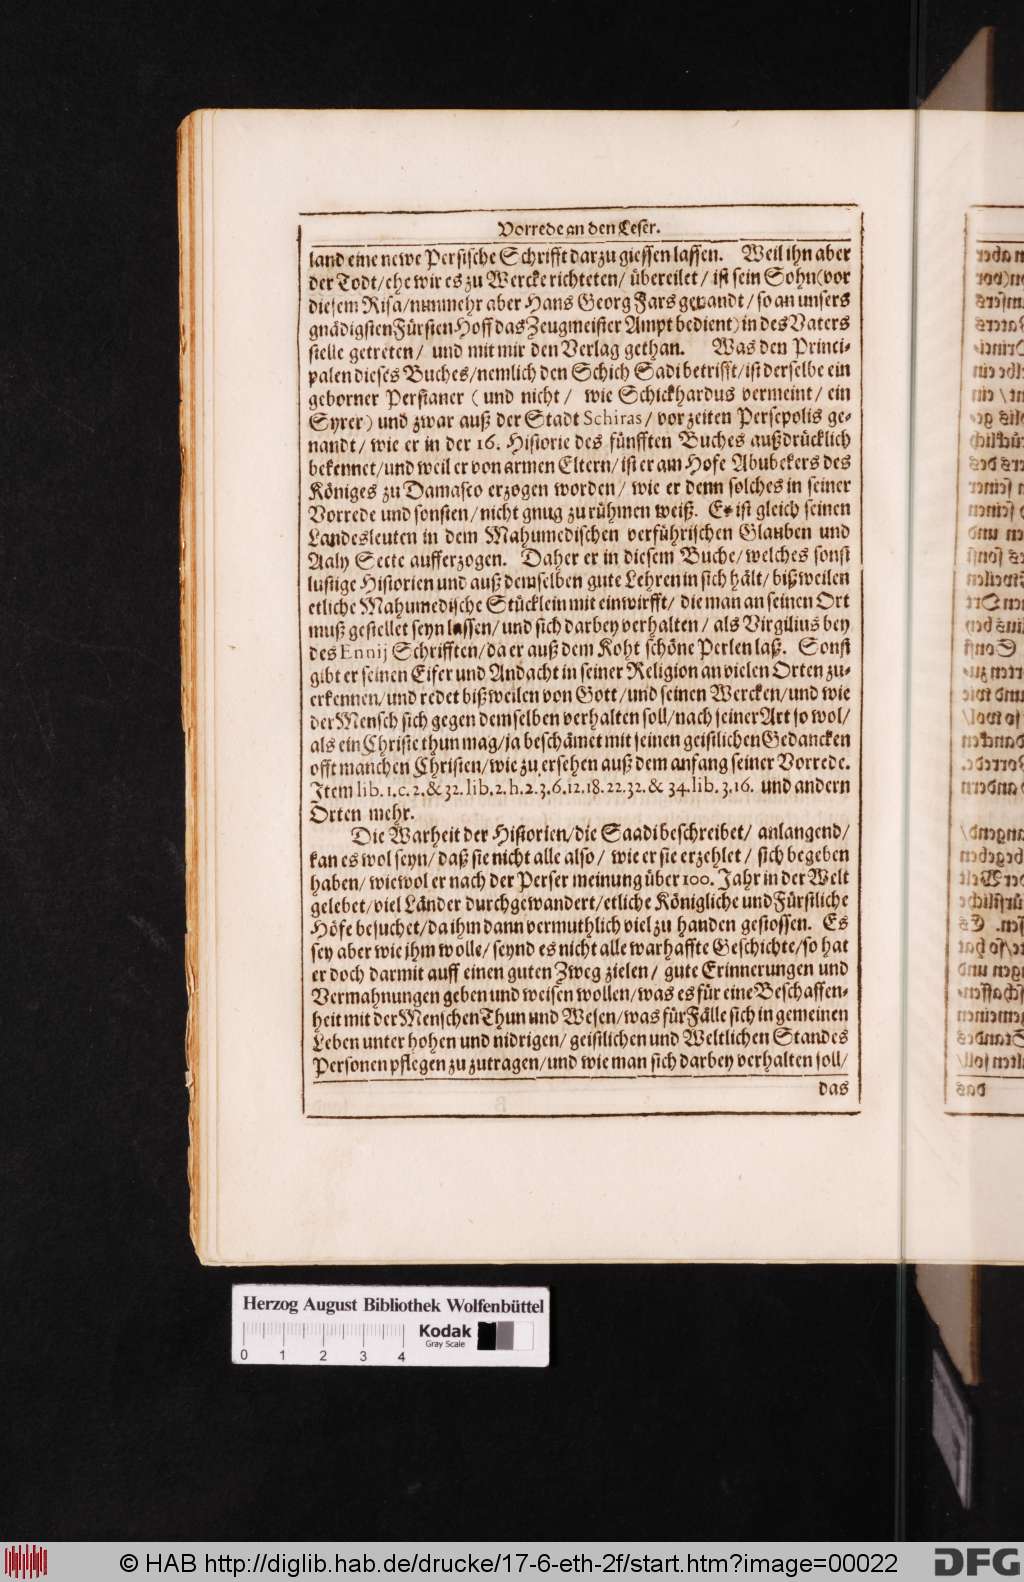 Vorrede an den Leser.
land eine newe Persische Schrifft darzu giessen lassen. Weil ihn aber
der Todt/ehe wir es zu Wercke richteten/ übereilet/ ist sein Sohn (vor
diesem Risa/nunmehr aber Hans Georg Fars genandt/so an unsers
gnädigsten Fürsten Hoff das Zeugmeister Ampt bedient) in des Vaters
stelle getreten/ und mit mir den Verlag gethan. Was den Princi-
palen dieses Buches/nemlich den Schich Sadi betrifft/ist derselbe ein
geborner Persianer ( und nicht/ wie Schickhardus vermeint/ ein
Syrer) und zwar auß der Stadt Schiras/ vorzeiten Persepolis ge-
nandt/ wie er in der 16. Historie des fünfften Buches außdrücklich
bekennet/und weil er von armen Eltern/ist er am Hofe Abubekers des
Königes zu Damasco erzogen worden/ wie er denn solches in seiner
Vorrede und sonsten/nicht gnug zu rühmen weiß. Er ist gleich seinen
Landesleuten in dem Mahumedischen verführischen Glauben und
Aaly Secte aufferzogen. Daher er in diesem Buche/welches sonst
lustige Historien und auß demselben gute Lehren in sich hält/ bißweilen
etliche Mahumedische Stücklein mit einwirfft/ die man an seinen Ort
muß gestellet seyn lassen/und sich darbey verhalten/ als Virgilius bey
des Ennij Schrifften/da er auß dem Koht schöne Perlen laß. Sonst
gibt er seinen Eifer und Andacht in seiner Religion an vielen Orten zu-
erkennen/und redet bißweilen von Gott/und seinen Wercken/und wie
der Mensch sich gegen demselben verhalten soll/nach seiner Art so wol/
als ein Christe thun mag/ja beschämet mit seinen geistlichen Gedancken
offt manchen Christen/wie zu ersehen auß dem anfang seiner Vorrede.
Item lib. 1.c.2.& 32.lib.2.h.2.3.6.12.18.22.32.& 34.lib.3.16. und andern
Orten mehr.
Die Warheit der Historien/die Saadi beschreibet/ anlangend/
kan es wol seyn/ daß sie nicht alle also/ wie er sie erzehlet/ sich begeben
haben/ wiewol er nach der Perser meinung über 100. Jahr in der Welt
gelebet/viel Länder durchgewandert/etliche Königliche und Fürstliche
Höfe besuchet/da ihm dann vermuthlich viel zu handen gestossen. Es
sey aber wie jhm wolle/ seynd es nicht alle warhaffte Geschichte/so hat
er doch darmit auff einen guten Zweg zielen/ gute Erinnerungen und
Vermahnungen geben und weisen wollen/was es für eine Beschaffen-
heit mit der Menschen Thun und Wesen/was für Fälle sich in gemeinen
Leben unter hohen und nidrigen/ geistlichen und Weltlichen Standes
Personen pflegen zu zutragen/und wie man sich darbey verhalten soll/
das
Herzog August Bibliothek Wolfenbüttel
0 1 2 3 4
Kodak
Gray Scale
© HAB http://diglib.hab.de/drucke/17-6-eth-2f/start.htm?image=00022
DFG